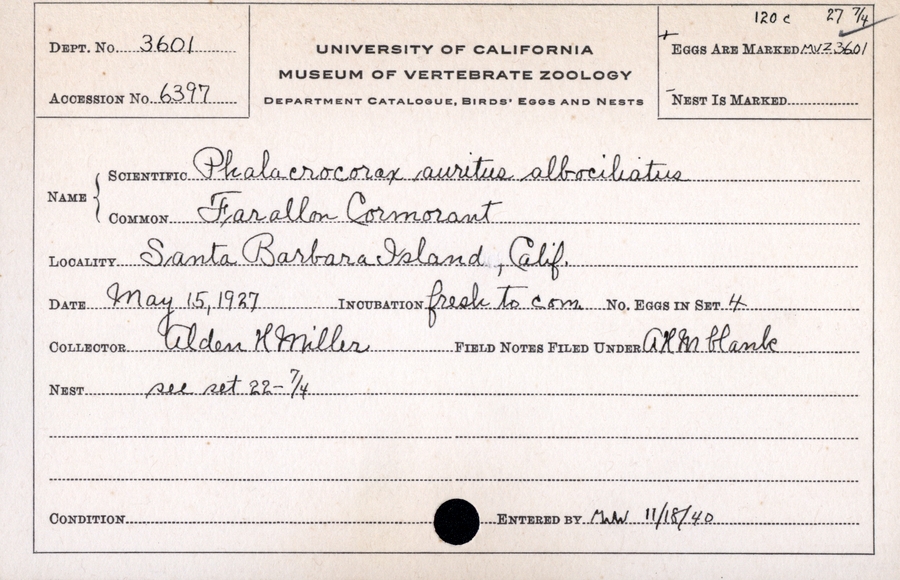 120 c 27 7/4
DEPT. No. 3601
UNIVERSITY OF CALIFORNIA
+ EGGS ARE MARKED MVZ 3601
MUSEUM OF VERTEBRATE ZOOLOGY
ACCESSION No. 6397
DEPARTMENT CATALOGUE, BIRDS' EGGS AND NESTS
- NEST IS MARKED
NAME
SCIENTIFIC Phalacrocorax auritus albociliatus
COMMON Farallon Cormorant
LOCALITY Santa Barbara Island, Calif.
DATE May 15, 1927 INCUBATION fresh to com No. EGGS IN SET 4
COLLECTOR Alden H Miller FIELD NOTES FILED UNDER AHM blank
NEST see set 22-7/4
CONDITION ENTERED BY 11/18/40